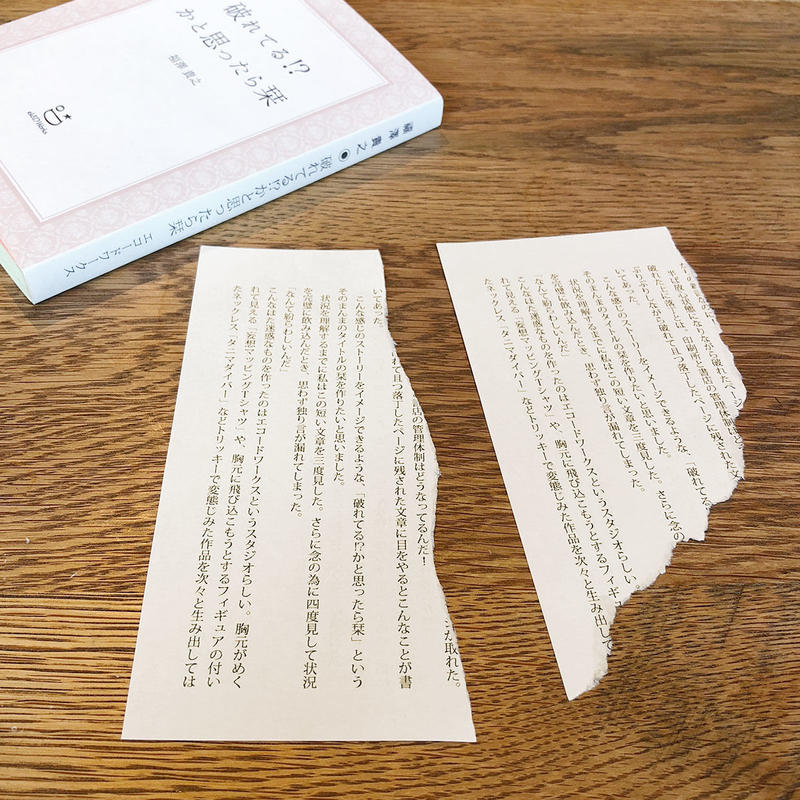 破れてる!?
かと思ったら栞
福澤貴之
ekoD Works
福澤貴之 ● 破れてる!?かと思ったら栞 エコードワークス
ジが取れた。
書店の管理体制はどうなってるんだ!
れて且つ落丁したページに残された文章に目をやるとこんなことが書
いてあった。
こんな感じのストーリーをイメージできるような、「破れてる!?かと思ったら栞」という
そのまんまのタイトルの栞を作りたいと思いました。
状況を理解するまでに私はこの短い文章を三度見した。さらに念の為に四度見して状況
を完璧に飲み込んだとき、思わず独り言が漏れてしまった。
「なんて紛らわしいんだ」
こんなはた迷惑なものを作ったのはエコードワークスというスタジオらしい。胸元がめく
れて見える「妄想マッピングTシャツ」や、胸元に飛び込こもうとするフィギュアの付い
たネックレス「タニマダイバー」などトリッキーで変態じみた作品を次々と生み出しては
印刷所や書店の管理体制
破れて且つ落丁したページに残された文
いてあった。
こんな感じのストーリーをイメージできるような、「破れてる
そのまんまのタイトルの栞を作りたいと思いました。
状況を理解するまでに私はこの短い文章を三度見した。さらに念の
を完璧に飲み込んだとき、思わず独り言が漏れてしまった。
「なんて紛らわしいんだ」
こんなはた迷惑なものを作ったのはエコードワークスというスタジオらしい。
れて見える「妄想マッピングTシャツ」や、胸元に飛び込こもうとするフィギュ
たネックレス「タニマダイバー」などトリッキーで変態じみた作品を次々と生み出して